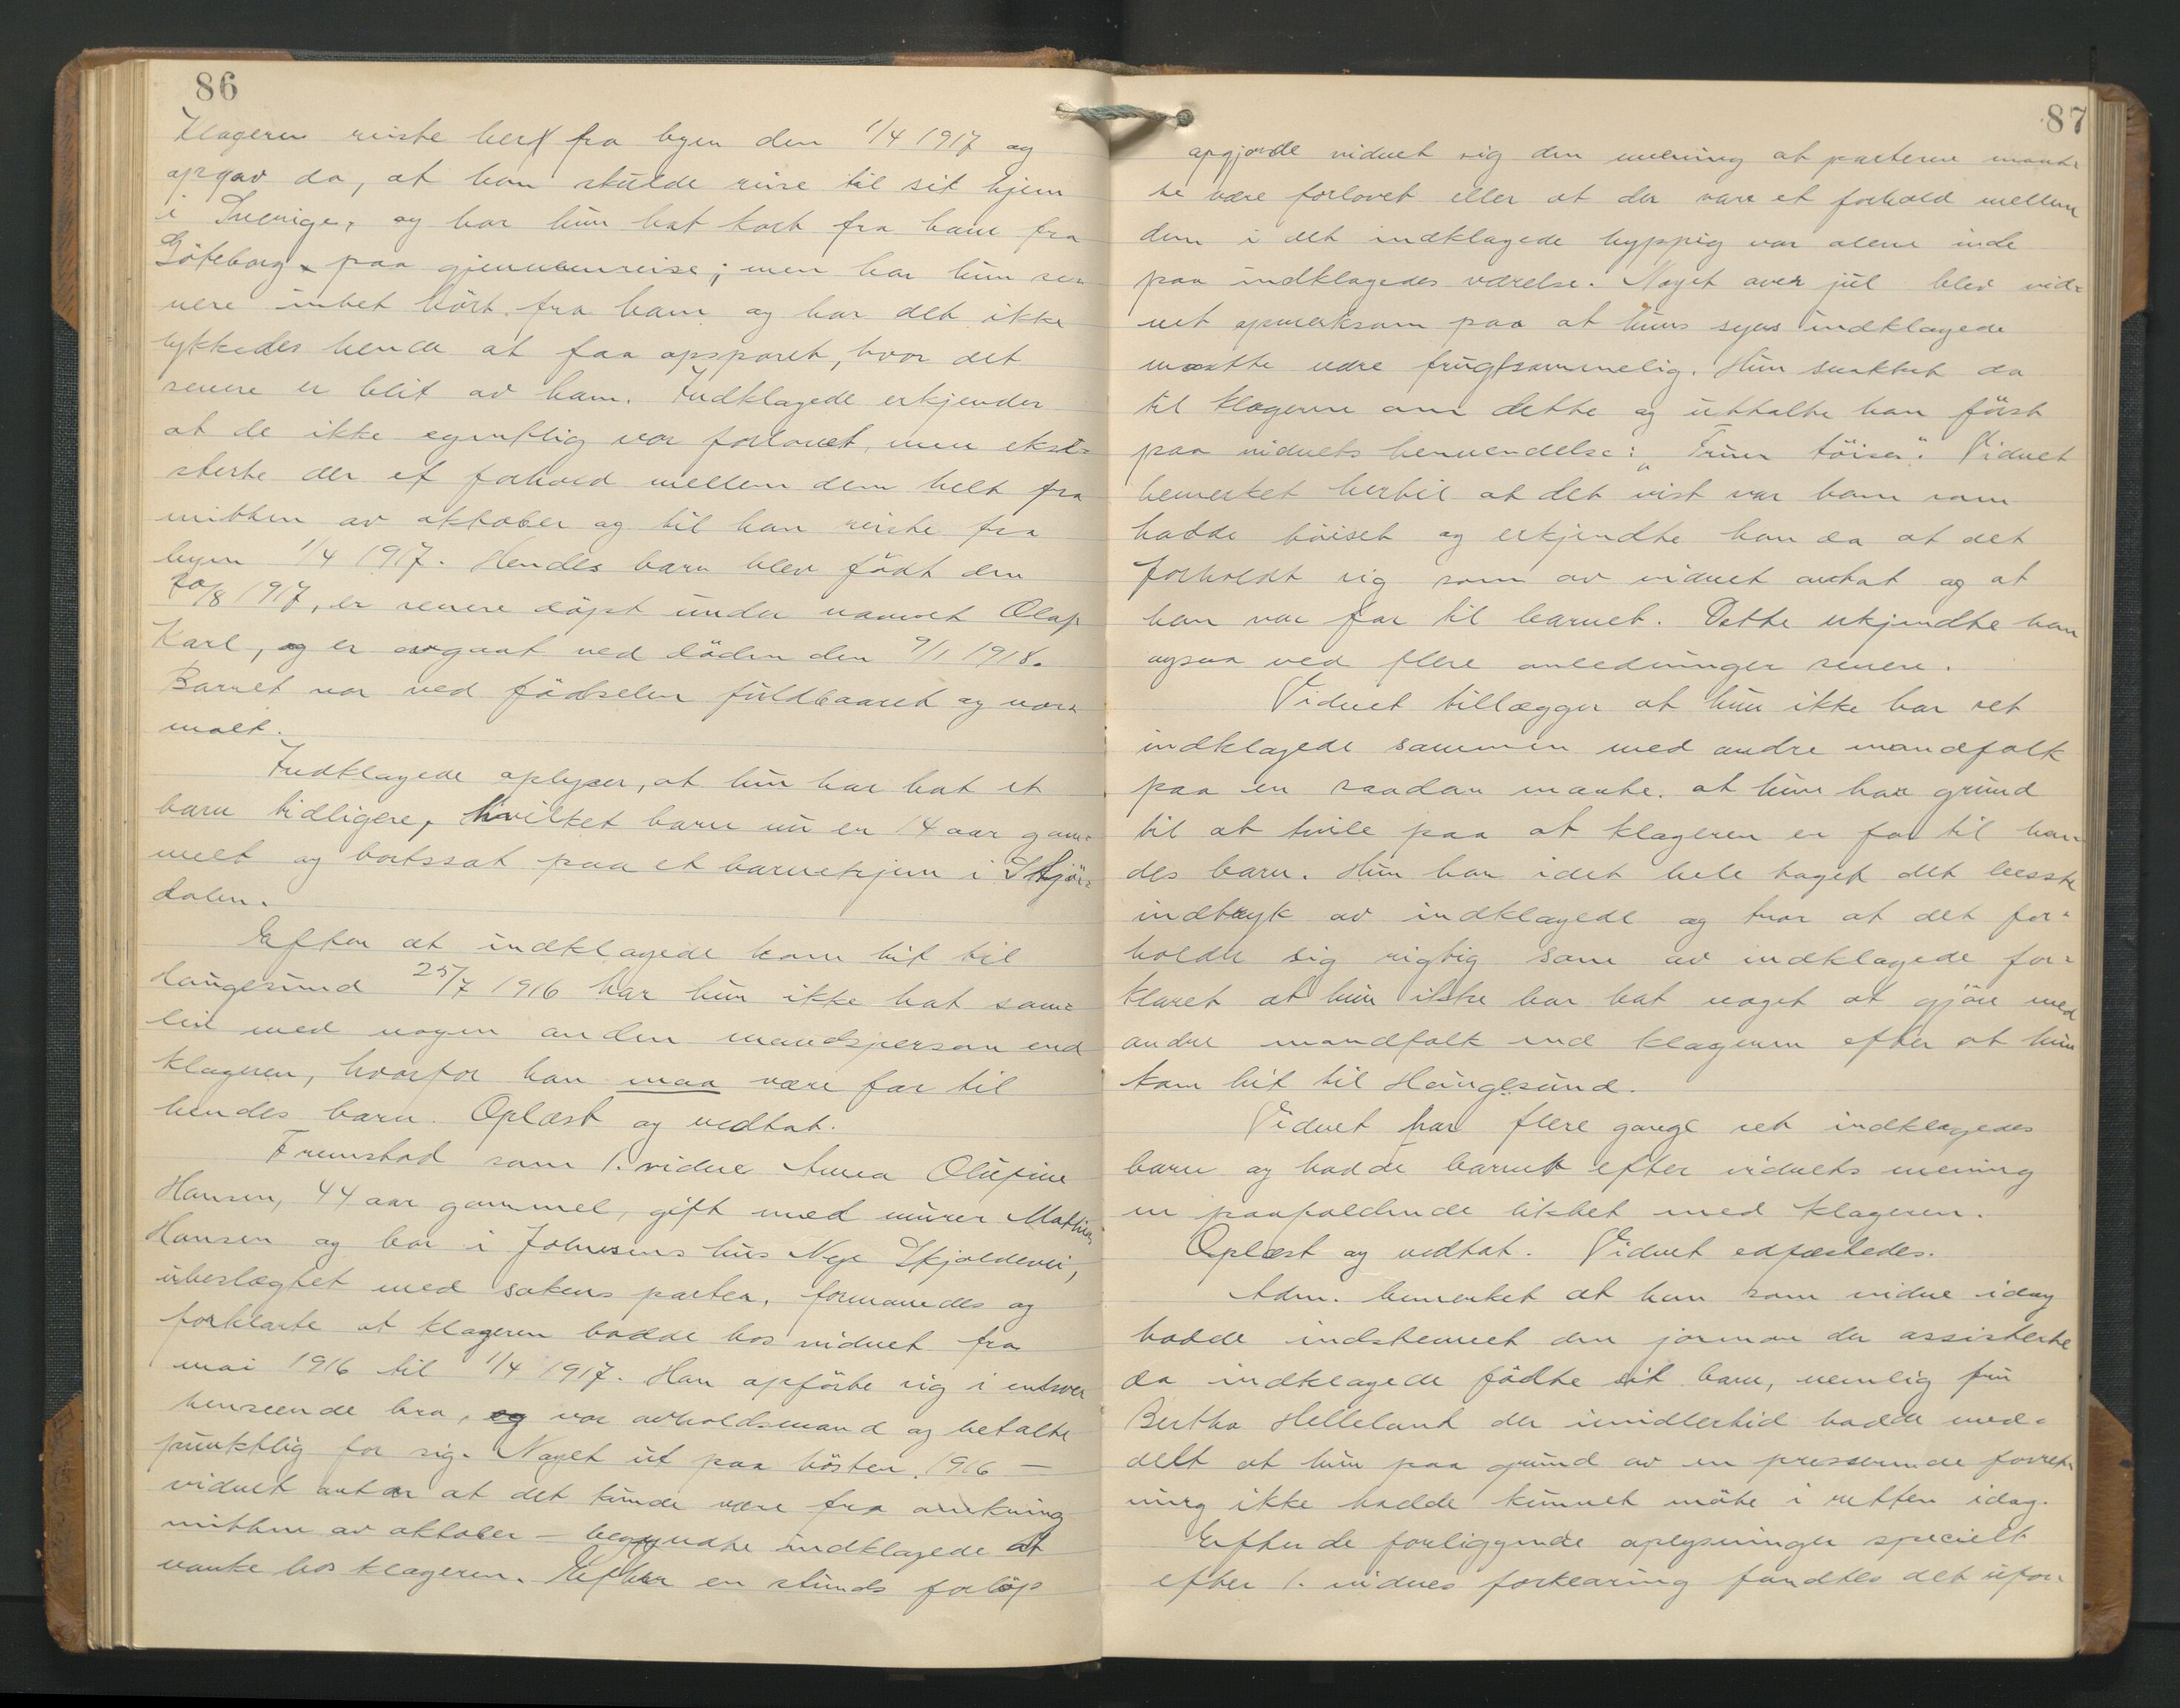 86
Klageren reiste her fra byen den 1/4 1917 og
opgav da, at han skulde reise til sit hjem
i Sverige, og har hun hat kort fra ham fra
Göteborg paa gjennemreise; men har hun se-
nere intet hört fra ham og har det ikke
lykkedes hende at faa opsporet, hvor det
senere er blit av ham. Indklagede erkjender
at de ikke egentlig var forlovet, men eksi-
sterte der et forhold mellem dem helt fra
mitten av oktober og til han reiste fra
byen 1/4 1917. Hendes barn blev födt den
20/8 1917, er senere döpt under navnet Olaf
Karl, og er avgaat ved döden den 9/1 1918.
Barnet var ved födselen fuldbaaret og nor-
malt.
Indklagede oplyser, at hun har hat et
barn tidligere, hvilket barn nu er 14 aar gam-
melt og bortssat paa et barnehjem i Stjör-
dalen.
Efter at indklagede kom hit til
Haugesund 25/7 1916 har hun ikke hat sam-
leie med nogen anden mandsperson end
klageren, hvorfor han maa være far til
hendes barn. Oplæst og vedtat.
Fremstod som 1. vidne Anna Olufine
Hansen, 44 aar gammel, gift med murer Mathias
Hansen og bor i Johnsens hus Nye Skjoldevei,
ubeslægtet med sakens parter, formanedes og
forklarte at klageren bodde hos vidnet fra
mai 1916 til 1/4 1917. Han opförte sig i enhver
henseende bra, og var avholdsmand og betalte
punktlig for sig. Noget ut paa hösten 1916 —
vidnet antar at det kunde være fra omkring
mitten av oktober — begyndte indklagede at
vanke hos klageren. Efter en stunds forløp
87
opgjorde vidnet sig den mening at parterne maat-
te være forlovet eller at der vare et forhold mellem
dem i det indklagede hyppig var alene inde
paa indklagedes værelse. Noget over jul blev vid-
net opmerksom paa at huns synes indklagede
maatte være frugtsommelig. Hun snakket da
til klageren om dette og uttalte han först
paa vidnets henvendelse: "Trun töiser". Vidnet
bemerket hertil at det vist var ham som
hadde töiset og erkjendte han da at det
forholdt sig som av vidnet antat og at
han var far til barnet. Dette erkjendte han
ogsaa ved flere anledninger senere.
Vidnet tillægger at hun ikke har set
indklagede sammen med andre mandfolk
paa en saadan maate. at hun har grund
til at tvile paa at klageren er far til hen-
des barn. Hun har idet hele taget det beste
indtryk av indklagede og tror at det for-
holde sig rigtig som av indklagede for-
klaret at hun ikke har hat noget at gjöre med
andre mandfolk end klageren efter at hun
kom hit til Haugesund.
Vidnet har flere gange set indklagedes
barn og hadde barnet efter vidnets mening
en paafaldende likhet med klageren.
Oplæst og vedtat. Vidnet edfæstedes.
Adm. bemerket at han som vidne idag
hadde indstevnet den jormor der assisterte
da indklagede födte sit barn, nemlig fru
Bertha Helleland der imidlertid hadde med-
delt at hun paa grund av en presserende forret-
ning ikke hadde kunnet möte i retten idag.
Efter de foreliggende oplysninger specielt
efter 1. vidnes forklaring fandtes det ufor-